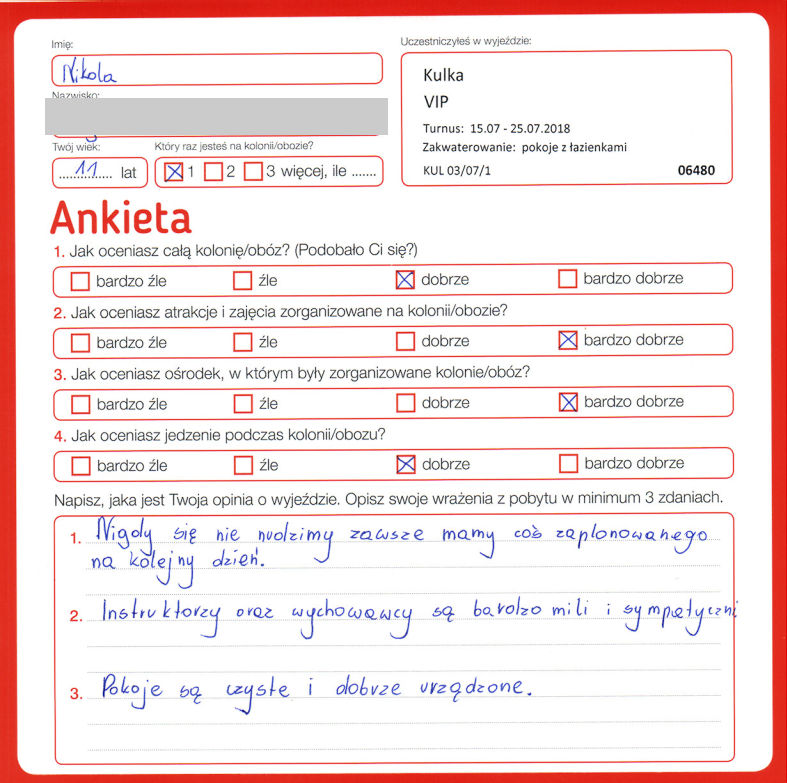 Imię:
Nikola
Nazwisko:
Twój wiek:
11 lat
Który raz jesteś na kolonii/obozie?
1 2 3 więcej, ile .......
Uczestniczyłeś w wyjeździe:
Kulka
VIP
Turnus: 15.07 - 25.07.2018
Zakwaterowanie: pokoje z łazienkami
KUL 03/07/1 06480
Ankieta
1. Jak oceniasz całą kolonię/obóz? (Podobało Ci się?)
bardzo źle źle dobrze bardzo dobrze
2. Jak oceniasz atrakcje i zajęcia zorganizowane na kolonii/obozie?
bardzo źle źle dobrze bardzo dobrze
3. Jak oceniasz ośrodek, w którym były zorganizowane kolonie/obóz?
bardzo źle źle dobrze bardzo dobrze
4. Jak oceniasz jedzenie podczas kolonii/obozu?
bardzo źle źle dobrze bardzo dobrze
Napisz, jaka jest Twoja opinia o wyjeździe. Opisz swoje wrażenia z pobytu w minimum 3 zdaniach.
1. Nigdy się nie nudzimy zawsze mamy coś zaplonowanego
na kolejny dzień.
2. Instruktorzy oraz wychowawcy są bardzo mili i sympatyczni
3. Pokoje są czyste i dobrze urządzone.